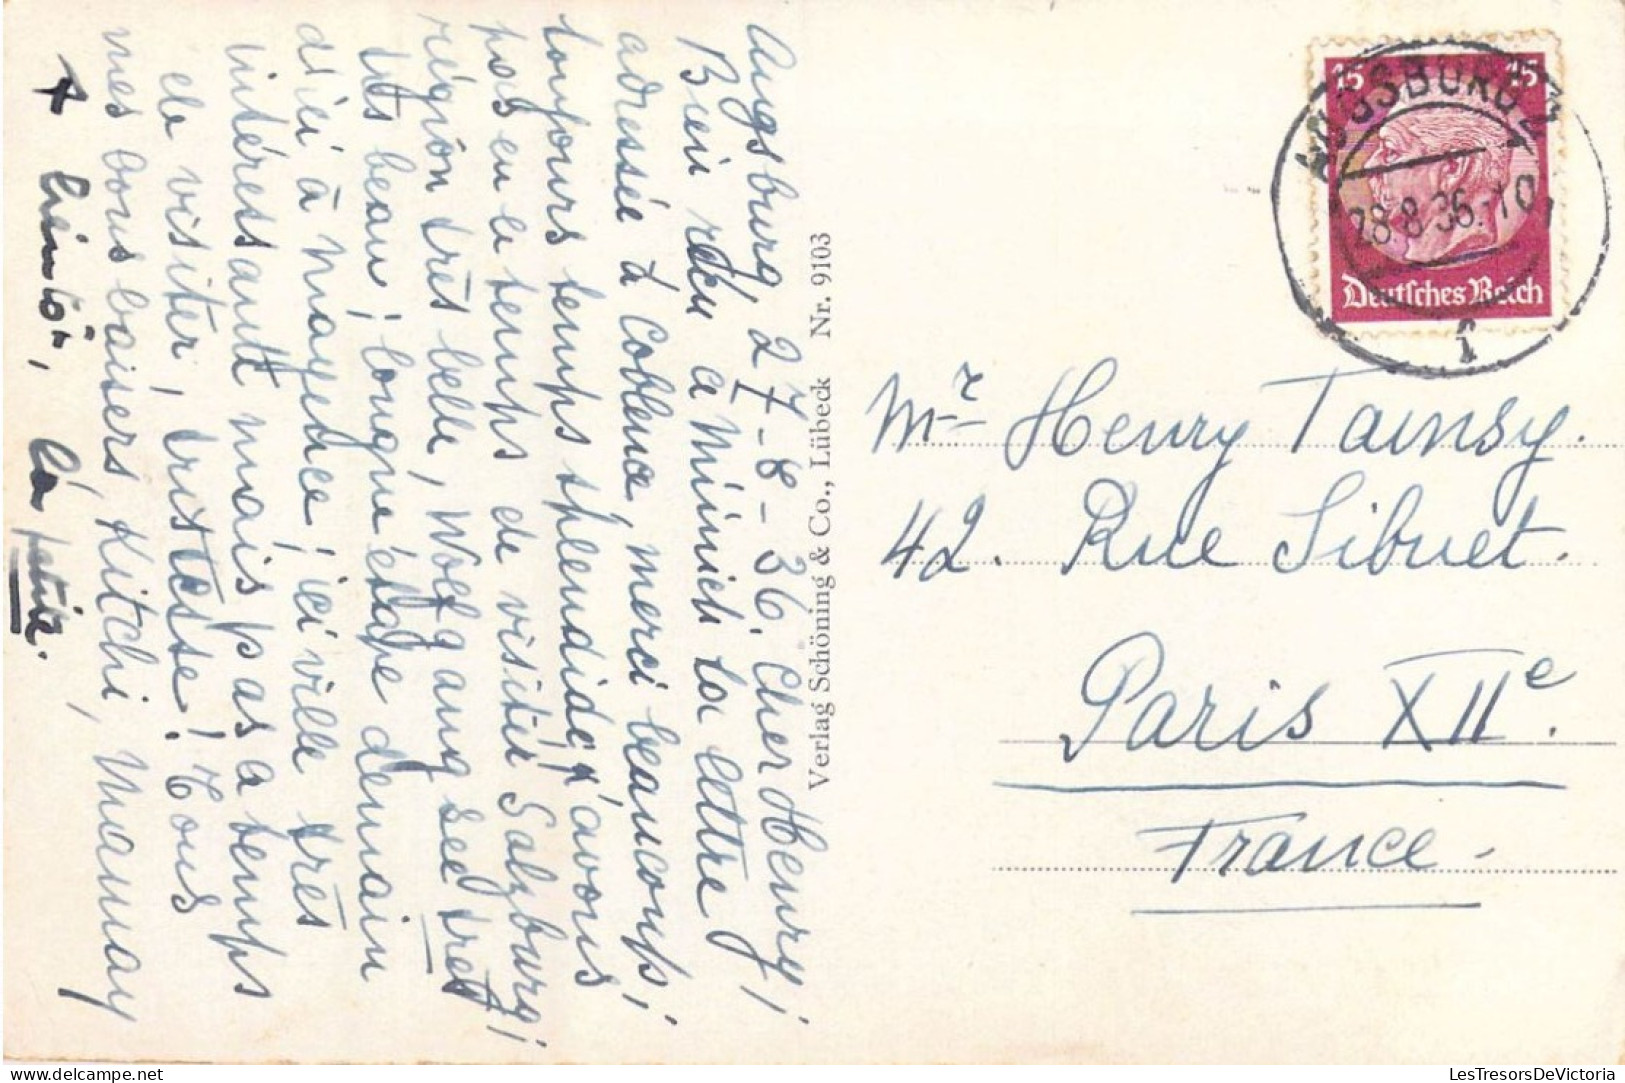 Augsburg, 27-8-36. Cher Henry,
Bien reçu a Münich ta lettre
adressée à Coblence, merci beaucoup;
toujours temps splendide, avons
pas eu le temps de visiter Salzburg,
région très belle, Wolfgang see très
très beau; longue étape demain
d'ici à mayence; ici ville très
intéressant mais pas a temps
de visiter, tristesse! Tous
mes bons baisers, Kitchi, Mamay
+ bientôt, La petite.
Verlag Schöning & Co., Lübeck Nr. 9103
AUGSBURG 2
28.8.36.-10
1
15 15
Deutsches Reich
Mr Henry Tainsy.
42. Rue Sibuet.
Paris XIIe.
France-
LesTresorsDeVictoria